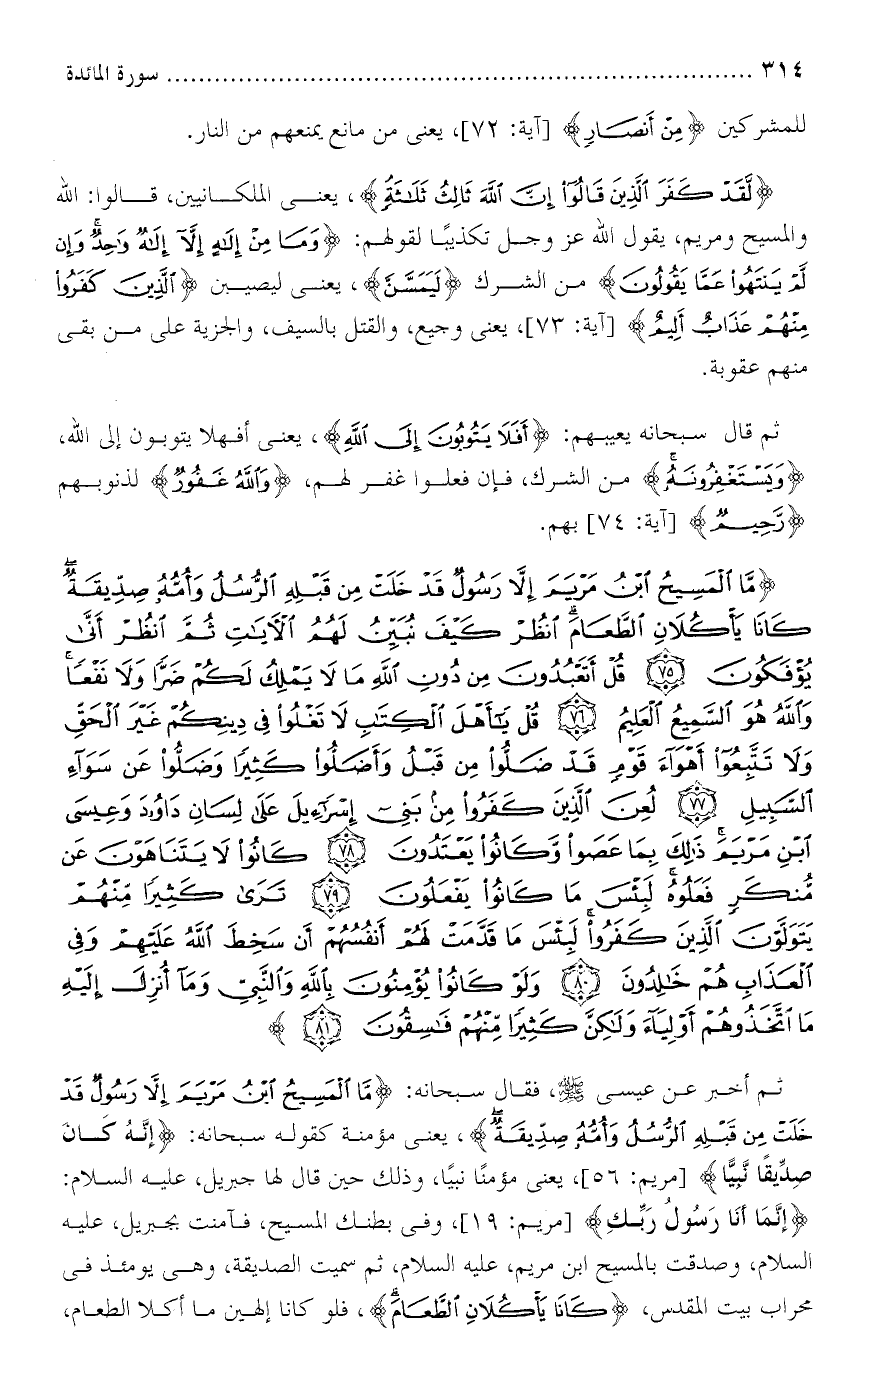 ٣١٤ ........................................................................... سورة المائدة
للمشركين ﴿مِنْ أَنصَارٍ﴾ [آية: ٧٢]، يعنى من مانع يمنعهم من النار.
﴿لَّقَدْ كَفَرَ ٱلَّذِينَ قَالُوٓا۟ إِنَّ ٱللَّهَ ثَالِثُ ثَلَـٰثَةٍ﴾، يعنـى الملكـانيين، قـالوا: الله
والمسيح ومريم، يقول الله عز وجل تكذيبًا لقولهم: ﴿وَمَا مِنْ إِلَـٰهٍ إِلَّآ إِلَـٰهٌ وَٰحِدٌ ۚ وَإِن
لَّمْ يَنتَهُوا۟ عَمَّا يَقُولُونَ﴾ من الشرك ﴿لَيَمَسَّنَّ﴾، يعنى ليصيبن ﴿ٱلَّذِينَ كَفَرُوا۟
مِنْهُمْ عَذَابٌ أَلِيمٌ﴾ [آية: ٧٣]، يعنى وجيع، والقتل بالسيف، والجزية على من بقى
منهم عقوبة.
ثم قال سبحانه يعيبهم: ﴿أَفَلَا يَتُوبُونَ إِلَى ٱللَّهِ﴾، يعنى أفهلا يتوبون إلى الله،
﴿وَيَسْتَغْفِرُونَهُۥ ۚ﴾ من الشرك، فإن فعلوا غفر لهم، ﴿وَٱللَّهُ غَفُورٌ﴾ لذنوبهم
﴿رَّحِيمٌ﴾ [آية: ٧٤] بهم.
﴿مَّا ٱلْمَسِيحُ ٱبْنُ مَرْيَمَ إِلَّا رَسُولٌ قَدْ خَلَتْ مِن قَبْلِهِ ٱلرُّسُلُ وَأُمُّهُۥ صِدِّيقَةٌ ۖ
كَانَا يَأْكُلَانِ ٱلطَّعَامَ ۗ ٱنظُرْ كَيْفَ نُبَيِّنُ لَهُمُ ٱلْـَٔايَـٰتِ ثُمَّ ٱنظُرْ أَنَّىٰ
يُؤْفَكُونَ ٧٥ قُلْ أَتَعْبُدُونَ مِن دُونِ ٱللَّهِ مَا لَا يَمْلِكُ لَكُمْ ضَرًّا وَلَا نَفْعًا ۚ
وَٱللَّهُ هُوَ ٱلسَّمِيعُ ٱلْعَلِيمُ ٧٦ قُلْ يَـٰٓأَهْلَ ٱلْكِتَـٰبِ لَا تَغْلُوا۟ فِى دِينِكُمْ غَيْرَ ٱلْحَقِّ
وَلَا تَتَّبِعُوٓا۟ أَهْوَآءَ قَوْمٍ قَدْ ضَلُّوا۟ مِن قَبْلُ وَأَضَلُّوا۟ كَثِيرًا وَضَلُّوا۟ عَن سَوَآءِ
ٱلسَّبِيلِ ٧٧ لُعِنَ ٱلَّذِينَ كَفَرُوا۟ مِنۢ بَنِىٓ إِسْرَٰٓءِيلَ عَلَىٰ لِسَانِ دَاوُۥدَ وَعِيسَى
ٱبْنِ مَرْيَمَ ۚ ذَٰلِكَ بِمَا عَصَوا۟ وَّكَانُوا۟ يَعْتَدُونَ ٧٨ كَانُوا۟ لَا يَتَنَاهَوْنَ عَن
مُّنكَرٍ فَعَلُوهُ ۚ لَبِئْسَ مَا كَانُوا۟ يَفْعَلُونَ ٧٩ تَرَىٰ كَثِيرًا مِّنْهُمْ
يَتَوَلَّوْنَ ٱلَّذِينَ كَفَرُوا۟ ۚ لَبِئْسَ مَا قَدَّمَتْ لَهُمْ أَنفُسُهُمْ أَن سَخِطَ ٱللَّهُ عَلَيْهِمْ وَفِى
ٱلْعَذَابِ هُمْ خَـٰلِدُونَ ٨٠ وَلَوْ كَانُوا۟ يُؤْمِنُونَ بِٱللَّهِ وَٱلنَّبِىِّ وَمَآ أُنزِلَ إِلَيْهِ
مَا ٱتَّخَذُوهُمْ أَوْلِيَآءَ وَلَـٰكِنَّ كَثِيرًا مِّنْهُمْ فَـٰسِقُونَ ٨١﴾
ثم أخبر عن عيسى ﷺ، فقال سبحانه: ﴿مَّا ٱلْمَسِيحُ ٱبْنُ مَرْيَمَ إِلَّا رَسُولٌ قَدْ
خَلَتْ مِن قَبْلِهِ ٱلرُّسُلُ وَأُمُّهُۥ صِدِّيقَةٌ ۖ﴾، يعنى مؤمنة كقوله سبحانه: ﴿إِنَّهُ كَانَ
صِدِّيقًا نَّبِيًّا﴾ [مريم: ٥٦]، يعنى مؤمنًا نبيًا، وذلك حين قال لها جبريل، عليه السلام:
﴿إِنَّمَا أَنَا رَسُولُ رَبِّكِ﴾ [مريم: ١٩]، وفى بطنك المسيح، فآمنت بجبريل، عليه
السلام، وصدقت بالمسيح ابن مريم، عليه السلام، ثم سميت الصديقة، وهى يومئذ فى
محراب بيت المقدس، ﴿كَانَا يَأْكُلَانِ ٱلطَّعَامَ ۗ﴾، فلو كانا إلهين ما أكلا الطعام،